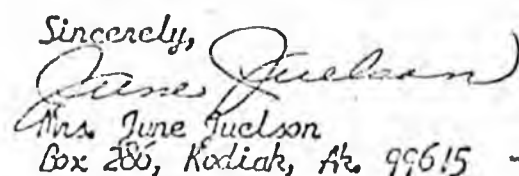 Sincerely,
June Juelson
Mrs. June Juelson
Box 286, Kodiak, Ak. 99615 -